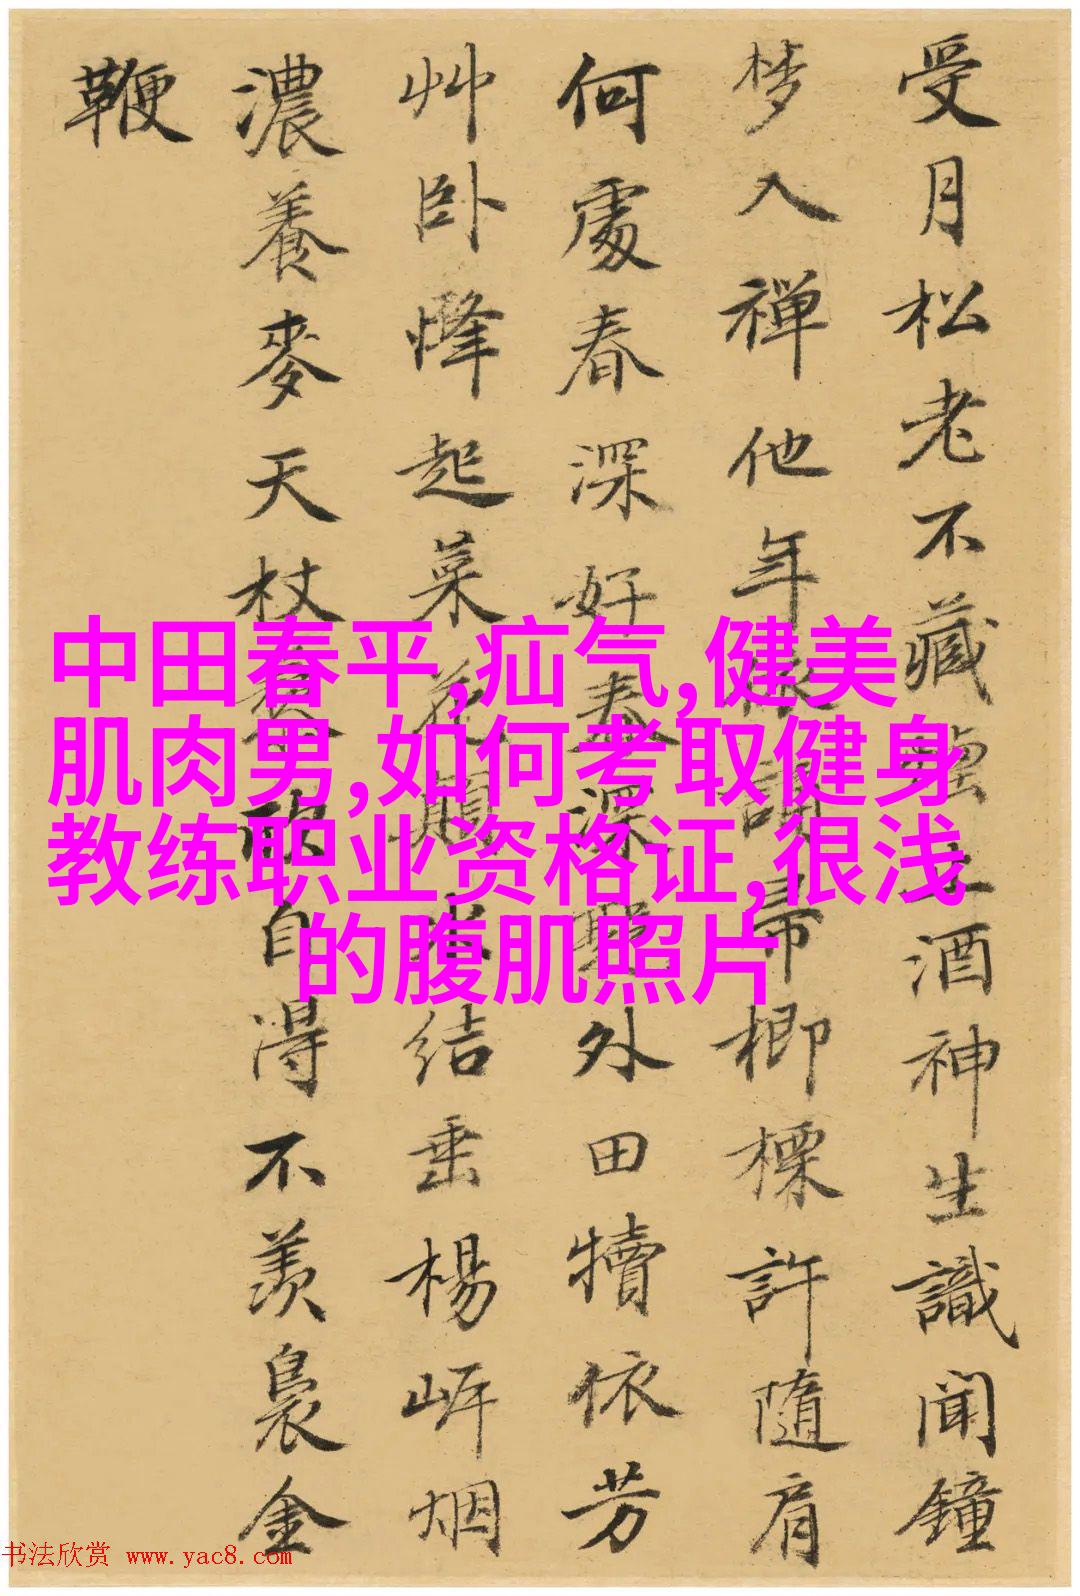 受月松老不藏酒神生識聞鐘
梦入禅他年帚楖許隨肩
何處春深好春深野外田犢依芳
艸卧起菜花顛結垂楊岍烟
濃養麥天杖自得不羨裊金
鞭
中田春平,疝气,健美
肌肉男,如何考取健身
教练职业资格证,很浅
的腹肌照片
书法欣赏 www.yac8.com